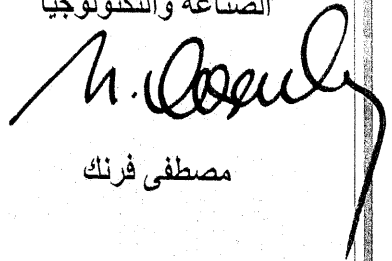 الصناعة والتكنولوجيا
مصطفى فرنك